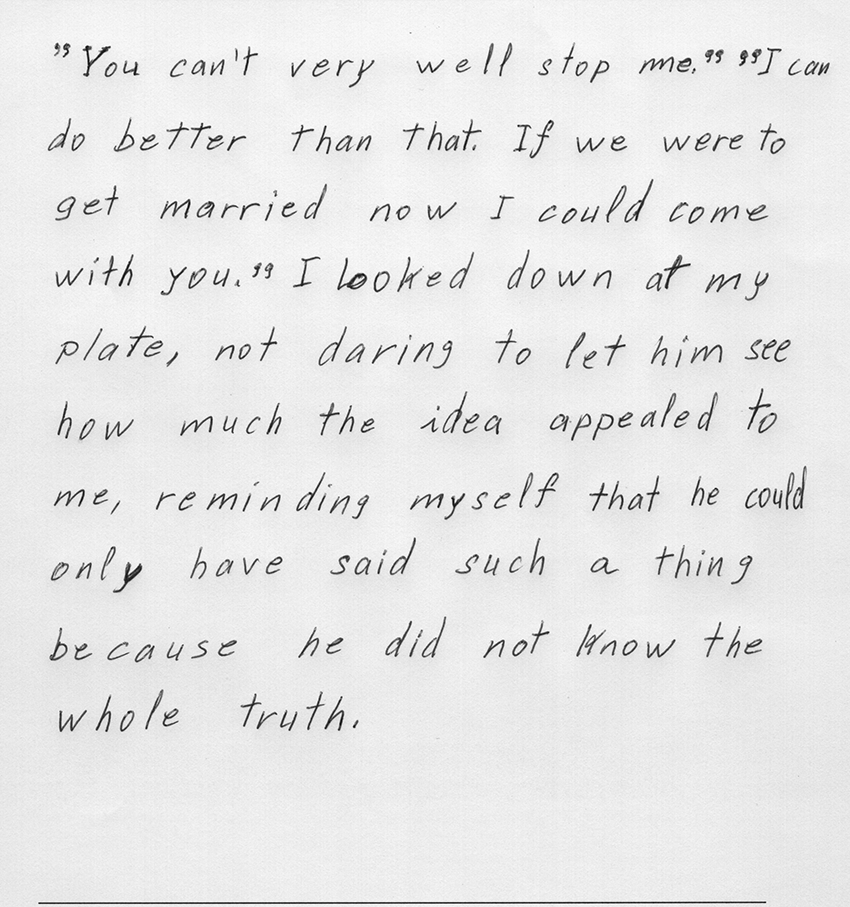 "You can't very well stop me." "I can
do better than that. If we were to
get married now I could come
with you." I looked down at my
plate, not daring to let him see
how much the idea appealed to
me, reminding myself that he could
only have said such a thing
because he did not know the
whole truth.